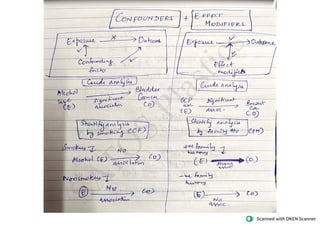 CONFOUNDERS + EFFECT MODIFIERS
Exposure → Outcome
Confounding factor
Crude analysis
Alcohol use (E) significant association Bladder Cancer (O)
Stratify analysis by smoking (CF)
Smokers
Alcohol (E) No association (O)
Nonsmokers
(E) No association (O)
Exposure → Outcome
Effect modifier
Crude analysis
OCP use (E) significant assoc. Breast Ca (O)
Stratify analysis by family H/o (EM)
+ve family history
(E) Strong assoc. (O)
-ve family history
(E) No assoc. (O)
Scanned with OKEN Scanner